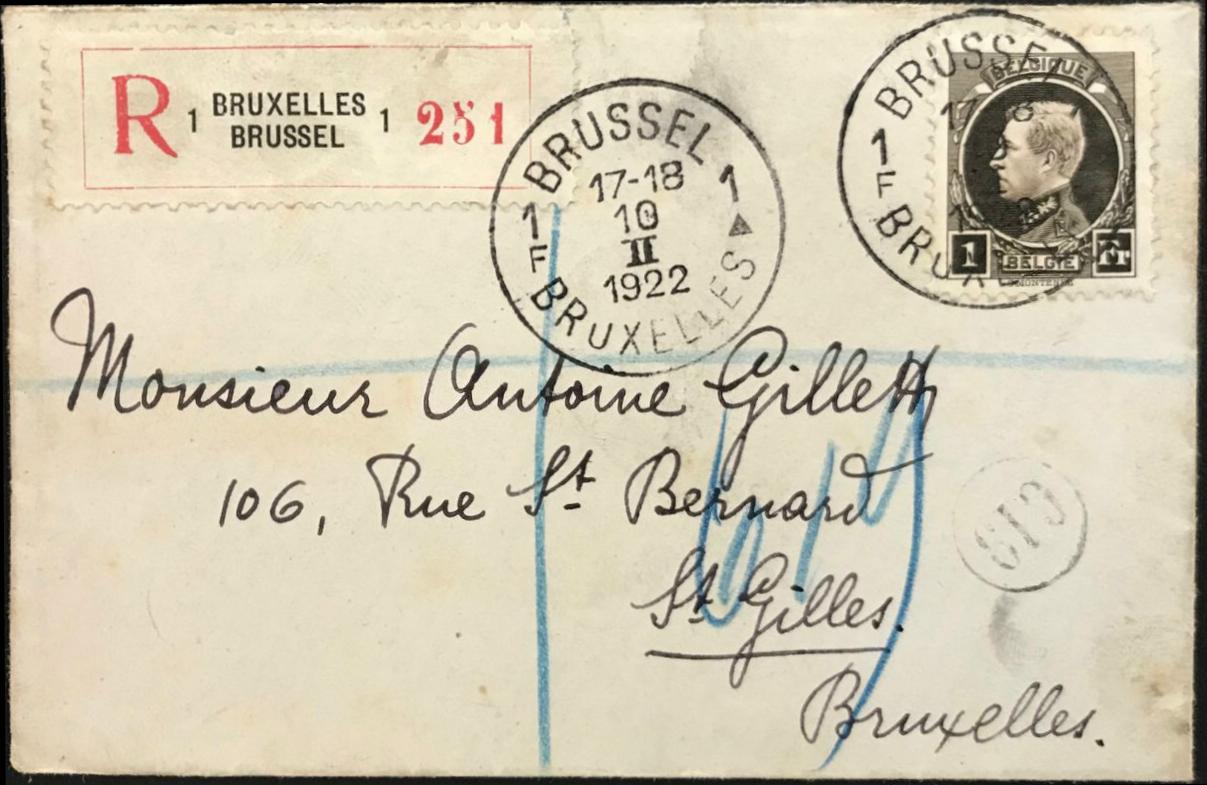 R 1 BRUXELLES 1 251
BRUSSEL
BRUSSEL
1 17-18 1
10
F II
1922
BRUXELLES
BRUSSEL
1
F
BELGIQUE
1 BELGIE Fr
Monsieur Antoine Gillett
106, Rue St Bernard
St Gilles.
Bruxelles.